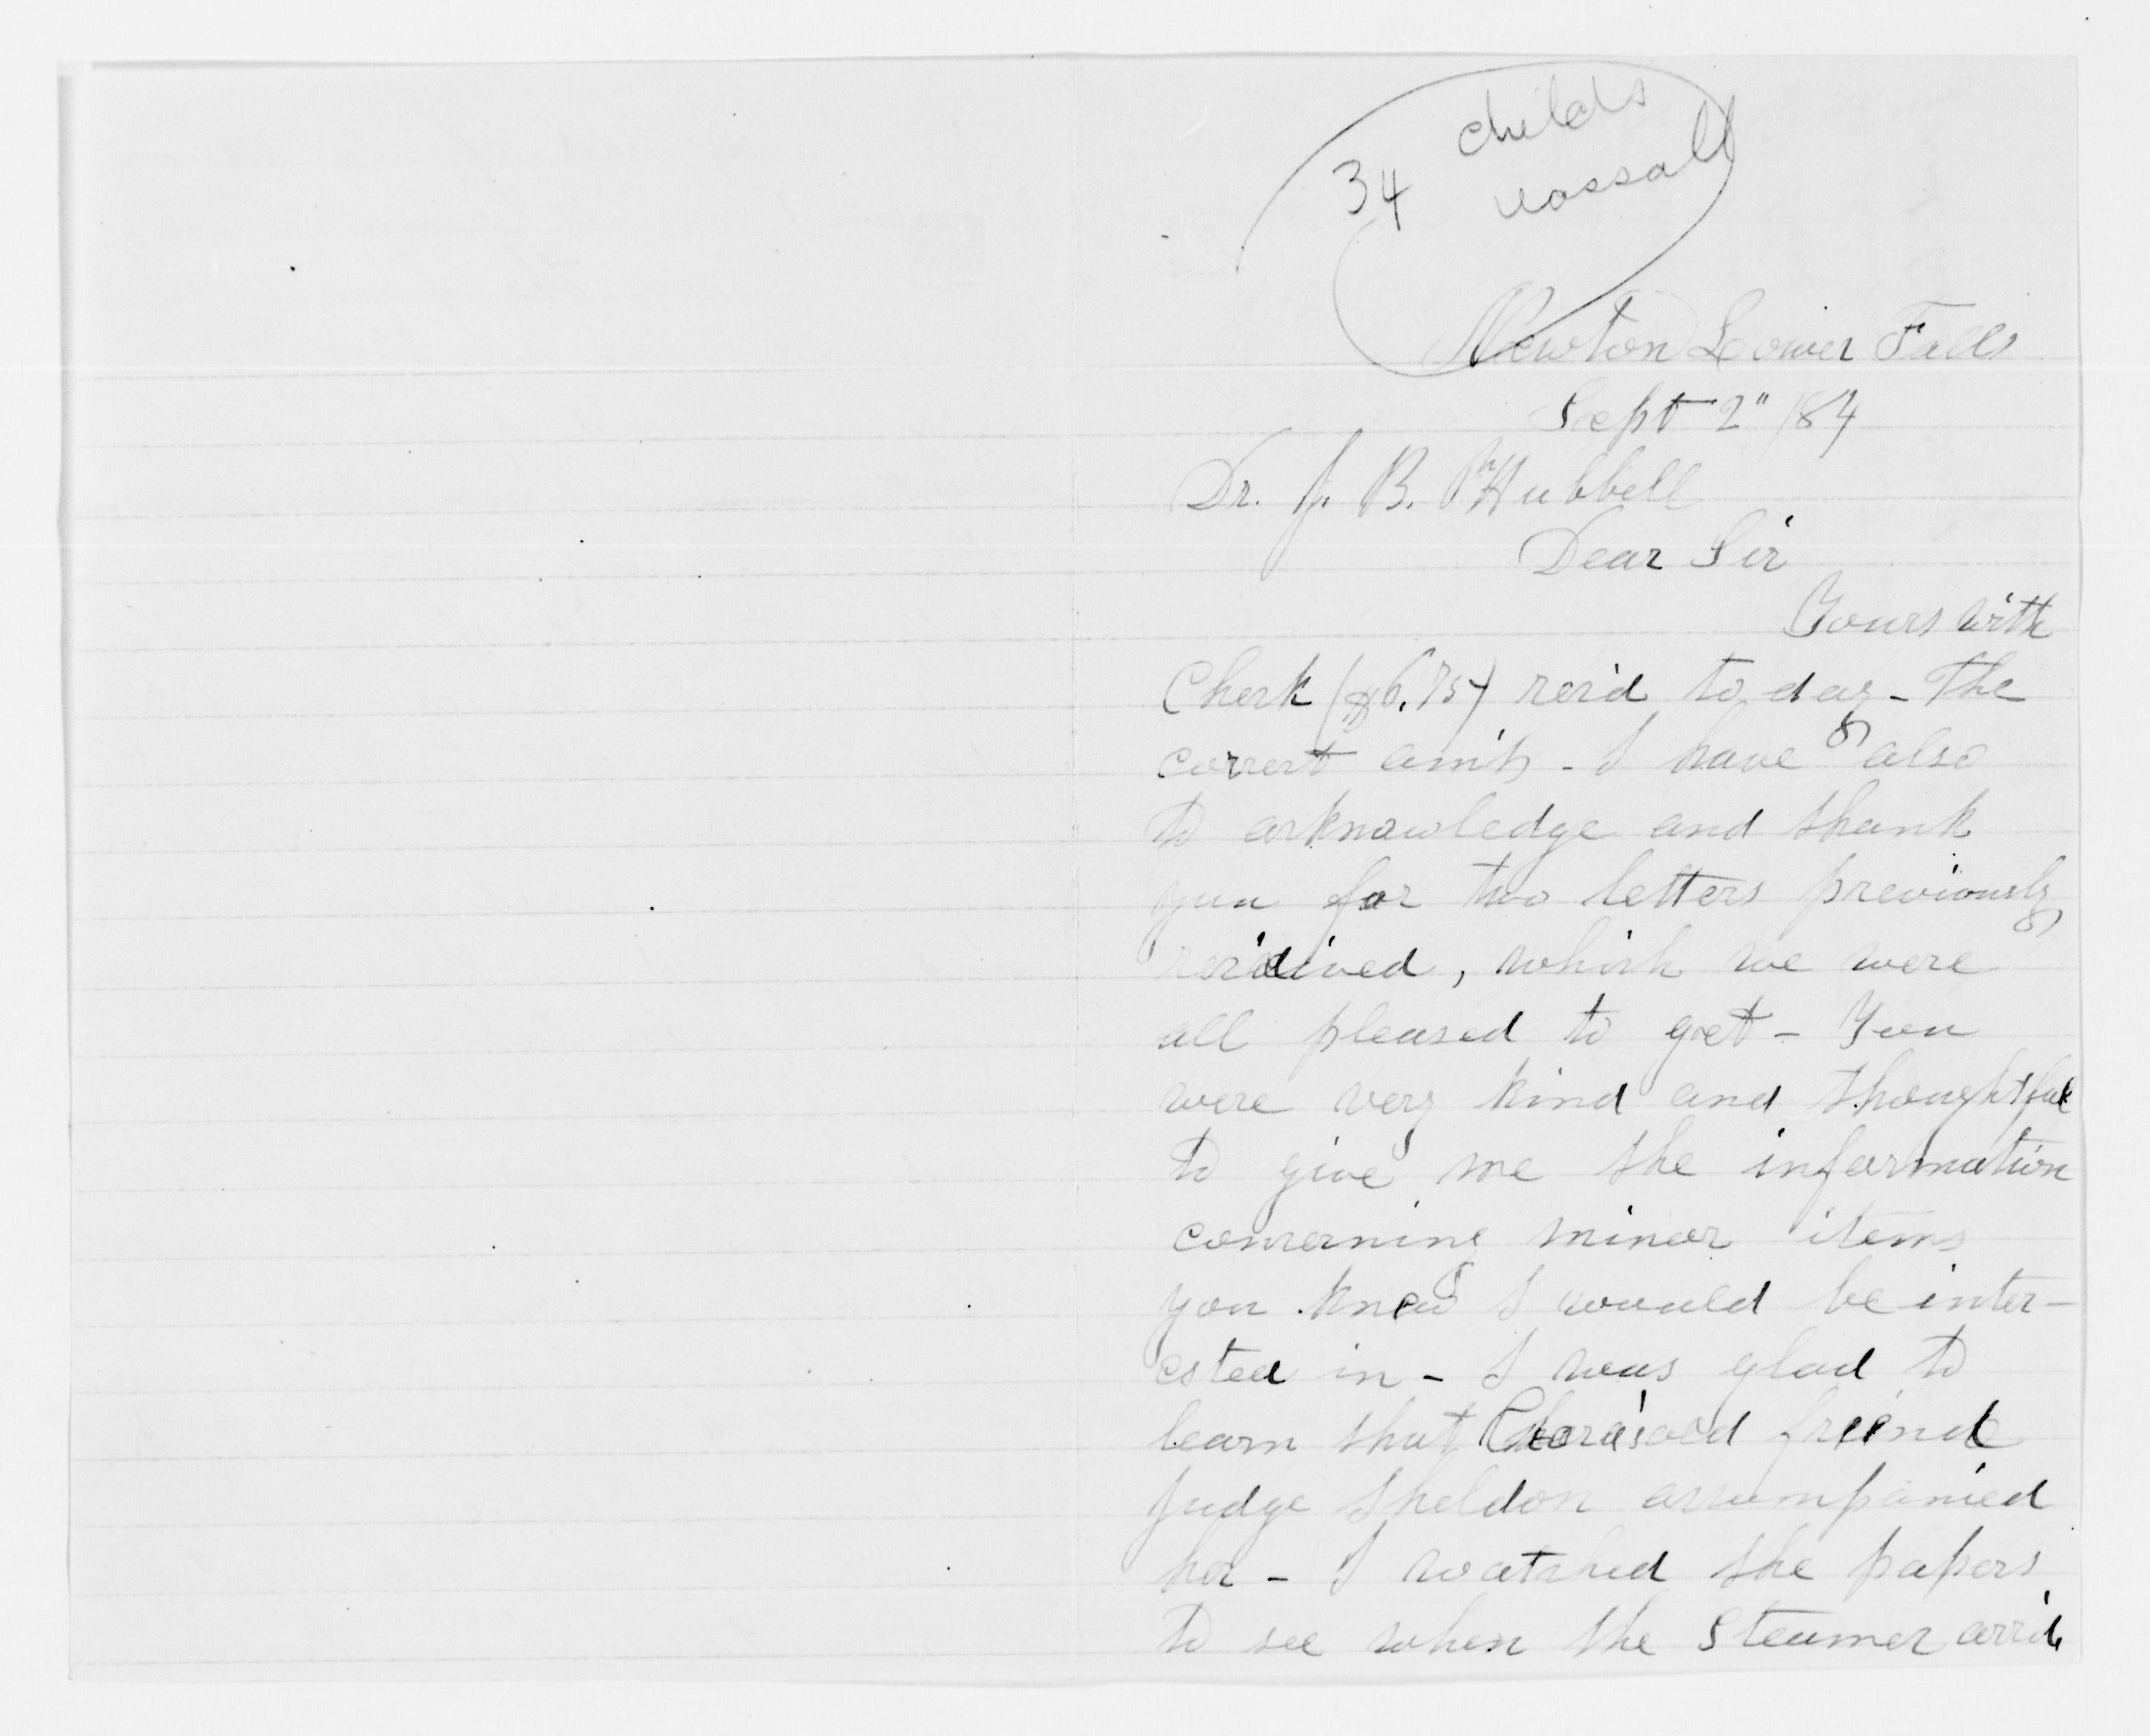 childs
34 vassall
Newton Lower Falls
Sept 2" /84
Dr. J. B. Hubbell
Dear Sir
Yours with
Check ($6.75) rec'd to day - The
correct am't - I have also
to acknowledge and thank
you for two letters previously
received, which we were
all pleased to get - You
were very kind and thoughtful
to give me the information
concerning minor items
you knew I would be inter-
ested in - I was glad to
learn that Clara's old friend
Judge Sheldon accompanied
her - I watched the papers
to see when the Steamer arrid